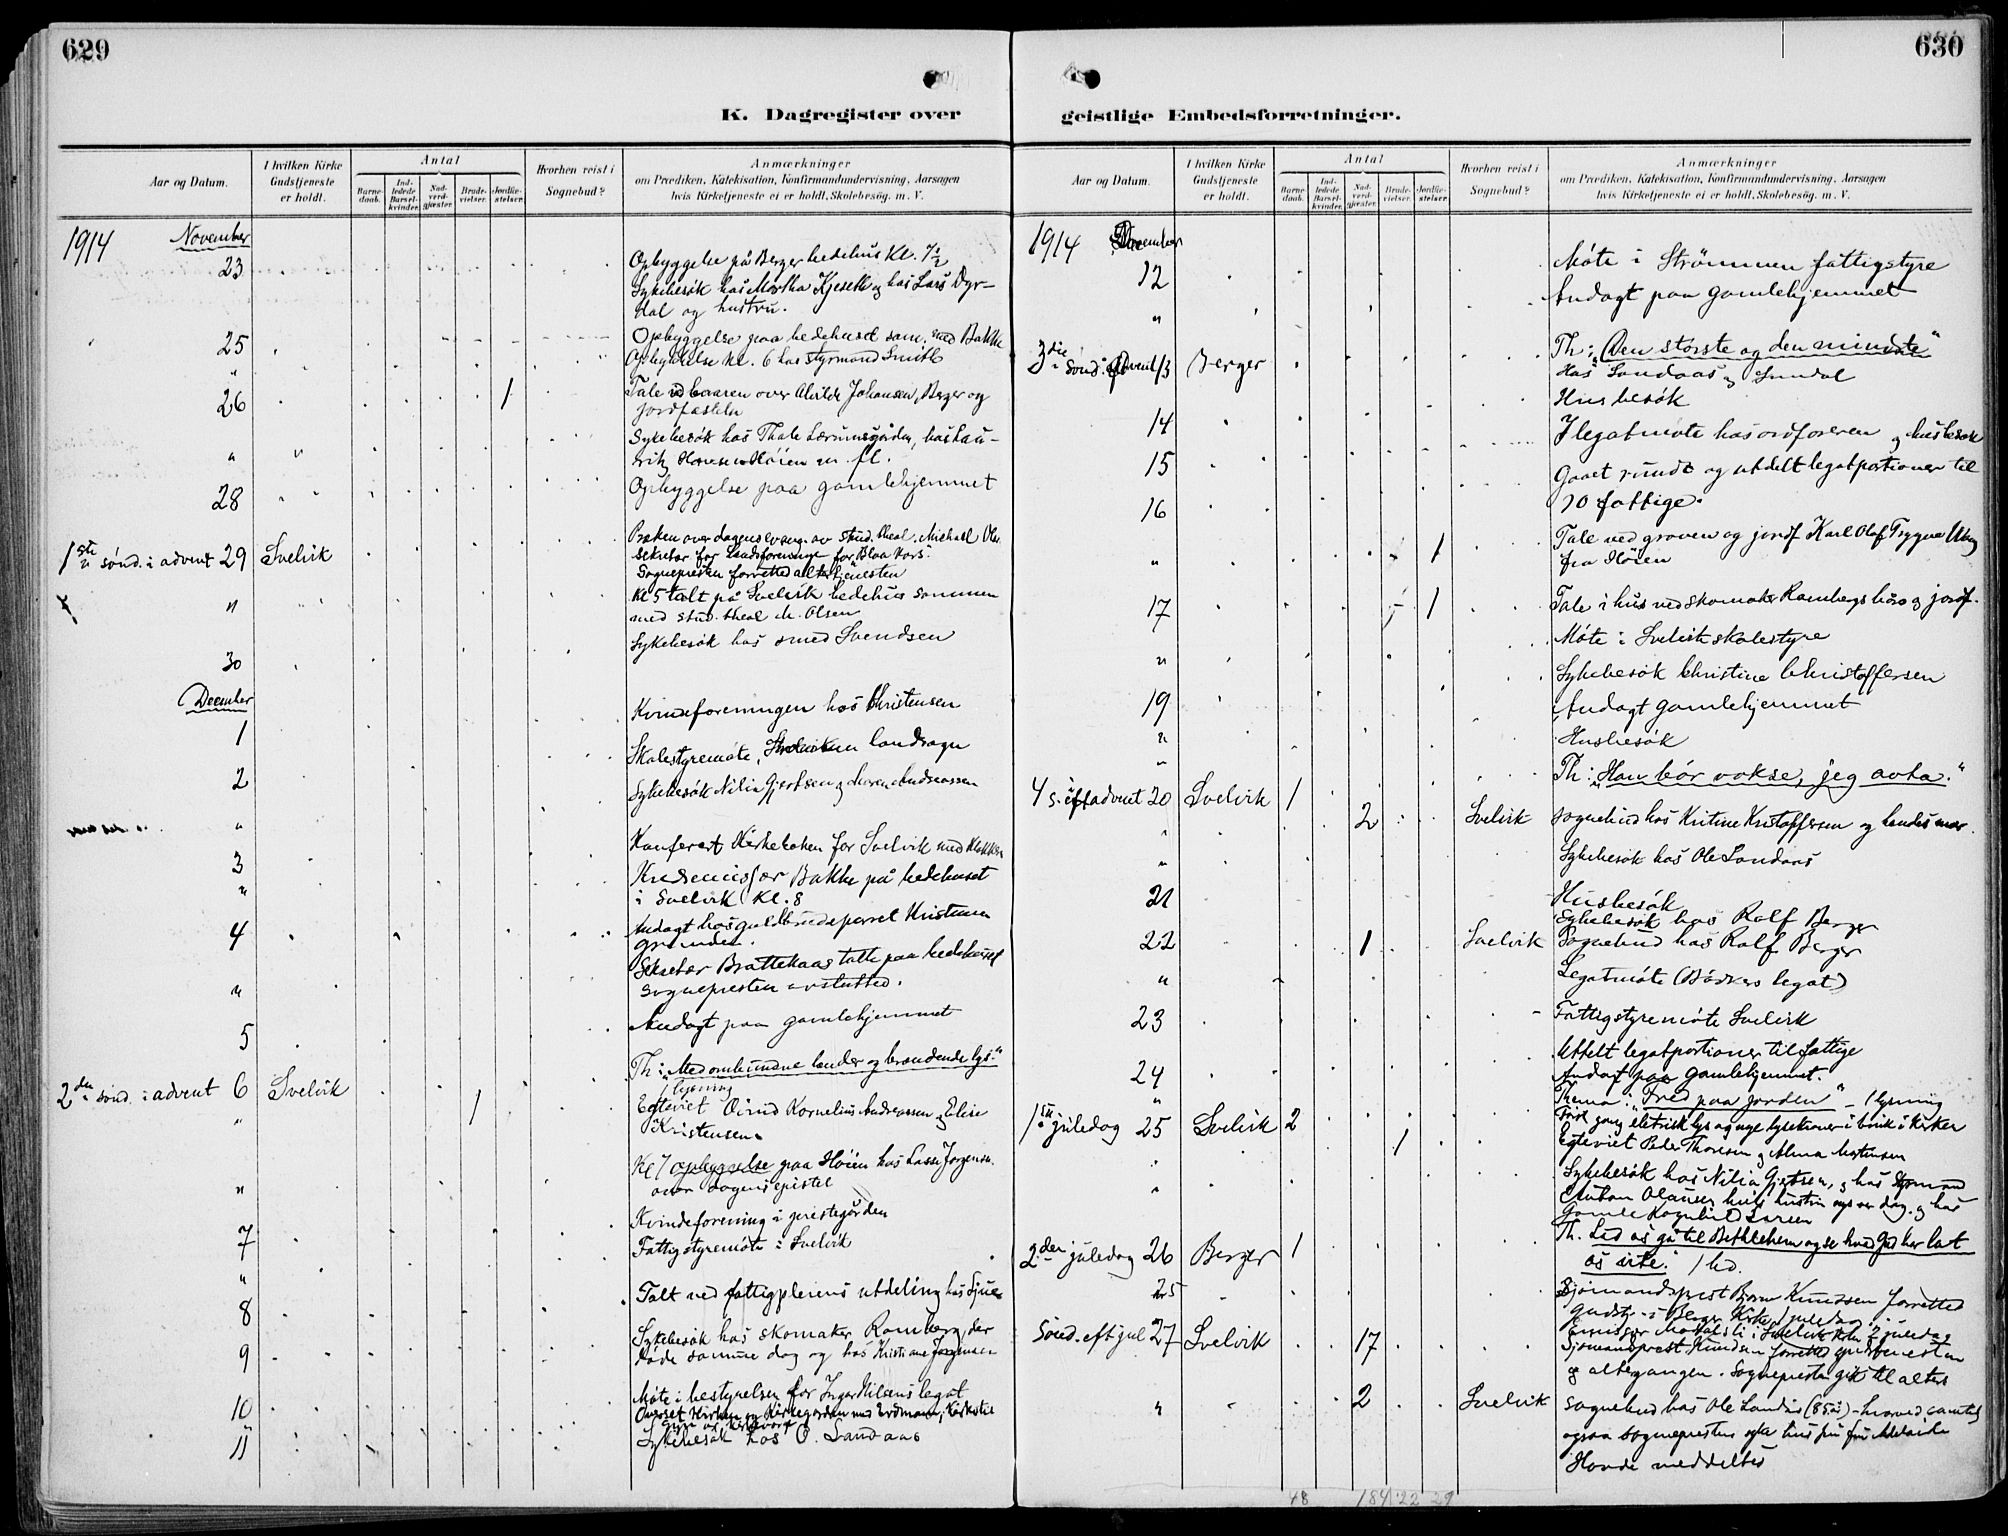 629
K. Dagregister over
Aar og Datum.
I hvilken Kirke Gudstjeneste er holdt.
Antal
Barne-daab.
Ind-ledede Barsel-kvinder.
Nad-verd-gjæster.
Brude-vielser.
Jordfæ-stelser.
Hvorhen reist i Sognebud?
Anmærkninger
om Prædiken, Katekisation, Konfirmandundervisning, Aarsagen
hvis Kirketjeneste ei er holdt, Skolebesøg. m. V.
1914 November
23 Opbyggelse på Berger bedehus Kl. 7½
Sykebesök hos Martha Kjeseth og hos Lars Dyr-
dal og hustru.
25 Opbyggelse paa bedehuset sam. med Bakke
" Opbyggelse kl. 6 hos styrmand Smith
26 1 Tale ved baaren over Alvilde Johansen, Berger og
jordfæstelse
" Sykebesök hos Thale Lærumsgården, hos Lau-
ritz Hansen Höien m. fl.
28 Opbyggelse paa gamlehjemmet
1ste sönd. i advent 29 Svelvik Præken over dagens evang. av stud. theol. Michael Ols.
sekretær for Landsforeninge for Blaa Kors.
Sognepresten forretted altertjenesten
" Kl 5 talt på Svelvik bedehus sammen
med stud. theol M. Olsen
30 Sykebesök hos smed Svendsen
December
1 Kvindeforeningen hos Christensen
2 Skolestyremöte, landsogn
" Sykebesök Nilia Gjertsen og Andreassen
3 Konferert Kirkeboken for Svelvik med Klokken
" Bakke på bedehuset
i Svelvik Kl. 8
4 Andagt hos guldbrudeparret Kristensen
Grunden.
" Sekretær Brattekaas talte paa bedehuset
sognepresten avslutted.
5 Andagt paa gamlehjemmet
2den sönd. i advent 6 Svelvik Th: "Med ombundne lender og brændende lys."
1 lysning
" 1 Egteviet Kornelius Andreassen og Elise
Kristensen.
" Kl 7 opbyggelse paa Höien hos Lasse Jorgensen.
over dagens epistel
7 Kvindeforening i prestegården
" Fattigstyremöte i Svelvik
8 Talt ved fattigpleiens utdeling hos
9 Sykebesök hos skomaker Ramberg, der
döde samme dag og hos Kristiane Jorgensen
10 Möte i bestyrelsen for Inger Nilsens legat
Kirken og Kirkegården med
11 Sykebesök hos O. Sandaas
630
geistlige Embedsforretninger.
Aar og Datum.
I hvilken Kirke Gudstjeneste er holdt.
Antal
Barne-daab.
Ind-ledede Barsel-kvinder.
Nad-verd-gjæster.
Brude-vielser.
Jordfæ-stelser.
Hvorhen reist i Sognebud?
Anmærkninger
om Prædiken, Katekisation, Konfirmandundervisning, Aarsagen
hvis Kirketjeneste ei er holdt, Skolebesøg. m. V.
1914 December
12 Möte i Strömmen fattigstyre
" Andagt paa gamlehjemmet
3die sönd. i advent 13 Berger Th: "Den störste og den mindste"
Hos Sandaas og Sundal
14 Husbesök
15 Ilegatmöte hos ordföreren og husbesök
16 Gaaet rundt og utdelt legatportioner til
70 fattige.
" 1 Tale ved graven og jordf Karl Olaf Trygve
fra Höien
17 1 Tale i hus ved skomaker Rambergs båre og jordf.
" Möte i Svelvik skolestyre
19 Sykebesök Christine Christoffersen
" Andagt gamlehjemmet
" Husbesök
4 s. i advent 20 Svelvik 1 Th: "Han bör vokse, jeg avta."
" 2 Svelvik Sognebud hos Kristine Kristoffersen og hendes mor.
" Sykebesök hos Ole Sandaas
21 Husbesök
Sykebesök hos Rolf Berger
22 1 Svelvik Sognebud hos Rolf Berger
" Legatmöte (Bödkers legat)
23 Fattigstyremöte Svelvik
24 Utdelt legatportioner til fattige
" Andagt paa gamlehjemmet.
1ste juledag 25 Svelvik 2 Thema: "Fred paa jorden" - 1 lysning
Först gang elektrisk lys og nye lysekroner i bruk i kirken
" 1 Egteviet Peder Thoresen og Alma Martinsen
" Sykebesök hos Nilia Gjertsen, og hos Styrmand
Olausen hvis hustru og hos
Gamle Larsen
2den juledag 26 Berger 1 Th. Lad os gå til Bethlehem og se hvad Gud har lat
os vite." 1 lys.
25 Sjömandsprest Knudsen forretted
gudstj. i Berger Kirke 1 juledag
i Svelvik kirke 2 juledag
Sönd. eft jul 27 Svelvik 17 Sjömandsprest Knudsen forretted gudstjenesten
og altergangen. Sognepresten gik til alters
" 2 Svelvik Sognebud hos Ole (85 år) - hvorved samtid
ogsaa sognepresten
meddeltes
48 184 22 29